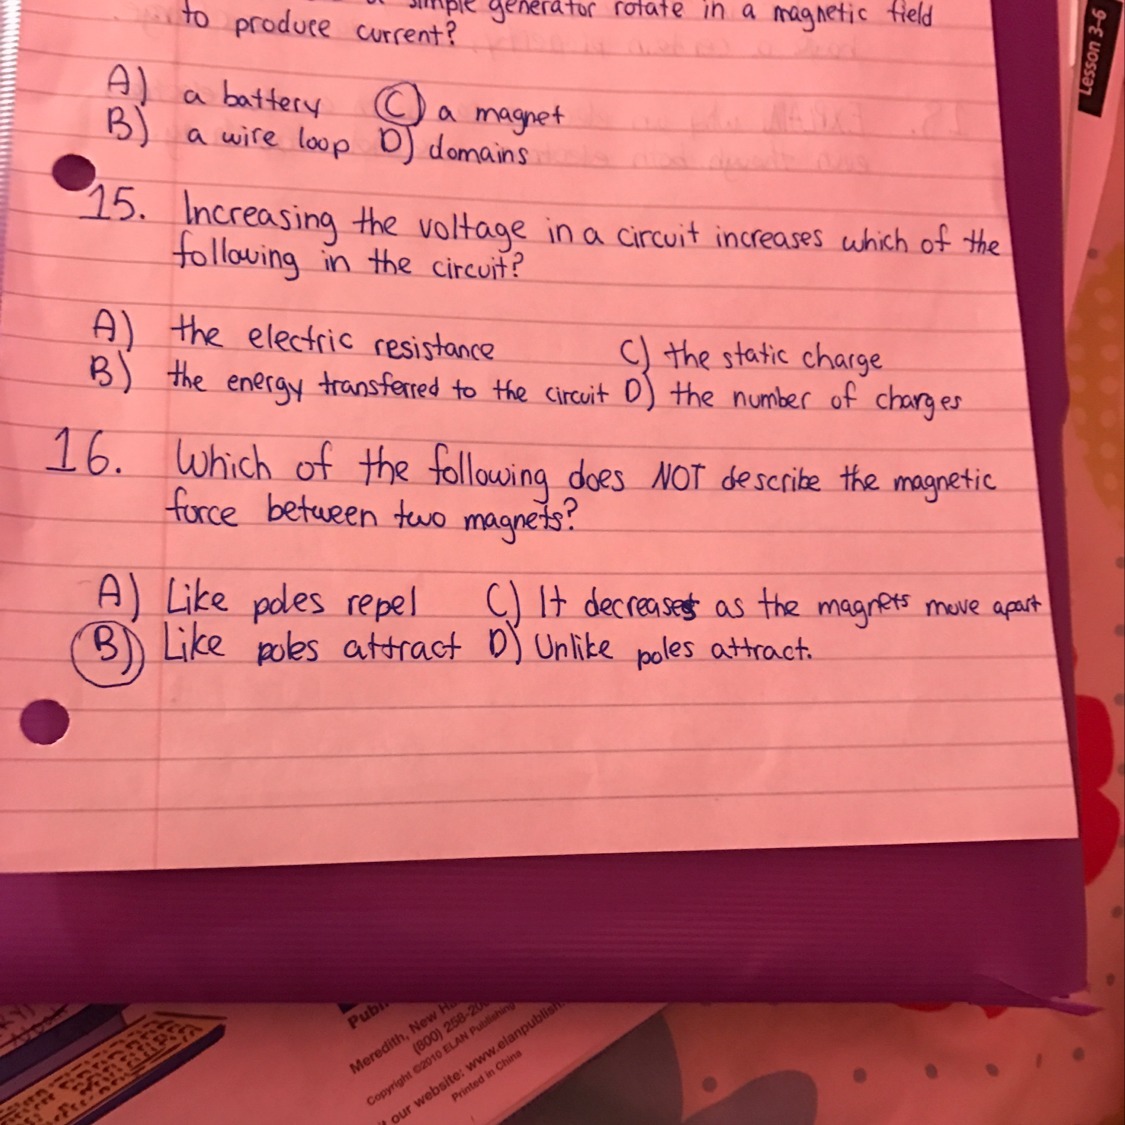 simple generator rotate in a magnetic field
to produce current?
A) a battery C) a magnet
B) a wire loop D) domains
15. Increasing the voltage in a circuit increases which of the
following in the circuit?
A) the electric resistance C) the static charge
B) the energy transferred to the circuit D) the number of charges
16. Which of the following does NOT describe the magnetic
force between two magnets?
A) Like poles repel C) It decreases as the magnets move apart
B) Like poles attract D) Unlike poles attract.
Lesson 3-6
Meredith, New
(800) 258-
Copyright ©2010 ELAN Publishing
our website: www.elanpublish
Printed in China